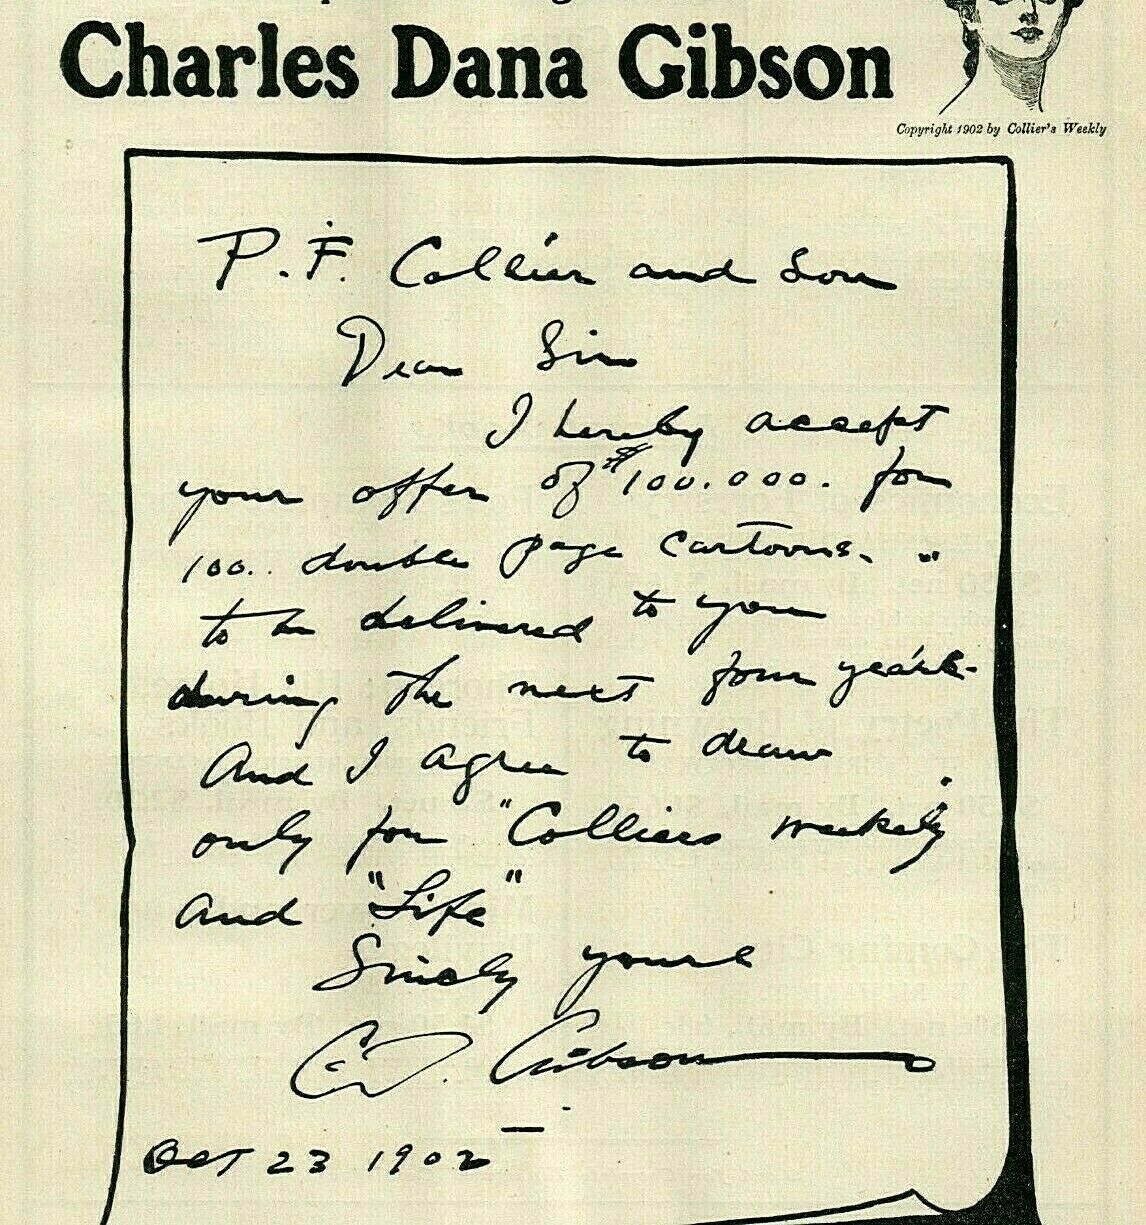 Charles Dana Gibson
Copyright 1902 by Collier's Weekly
P. F. Collier and Son
Dear Sir
I hereby accept
your offer of $100.000. for
100.. double page cartoons.
to be delivered to you
during the next four years.
And I agree to draw
only for "Colliers Weekly"
and "Life"
Sincly yours
C. D. Gibson
Oct 23 1902